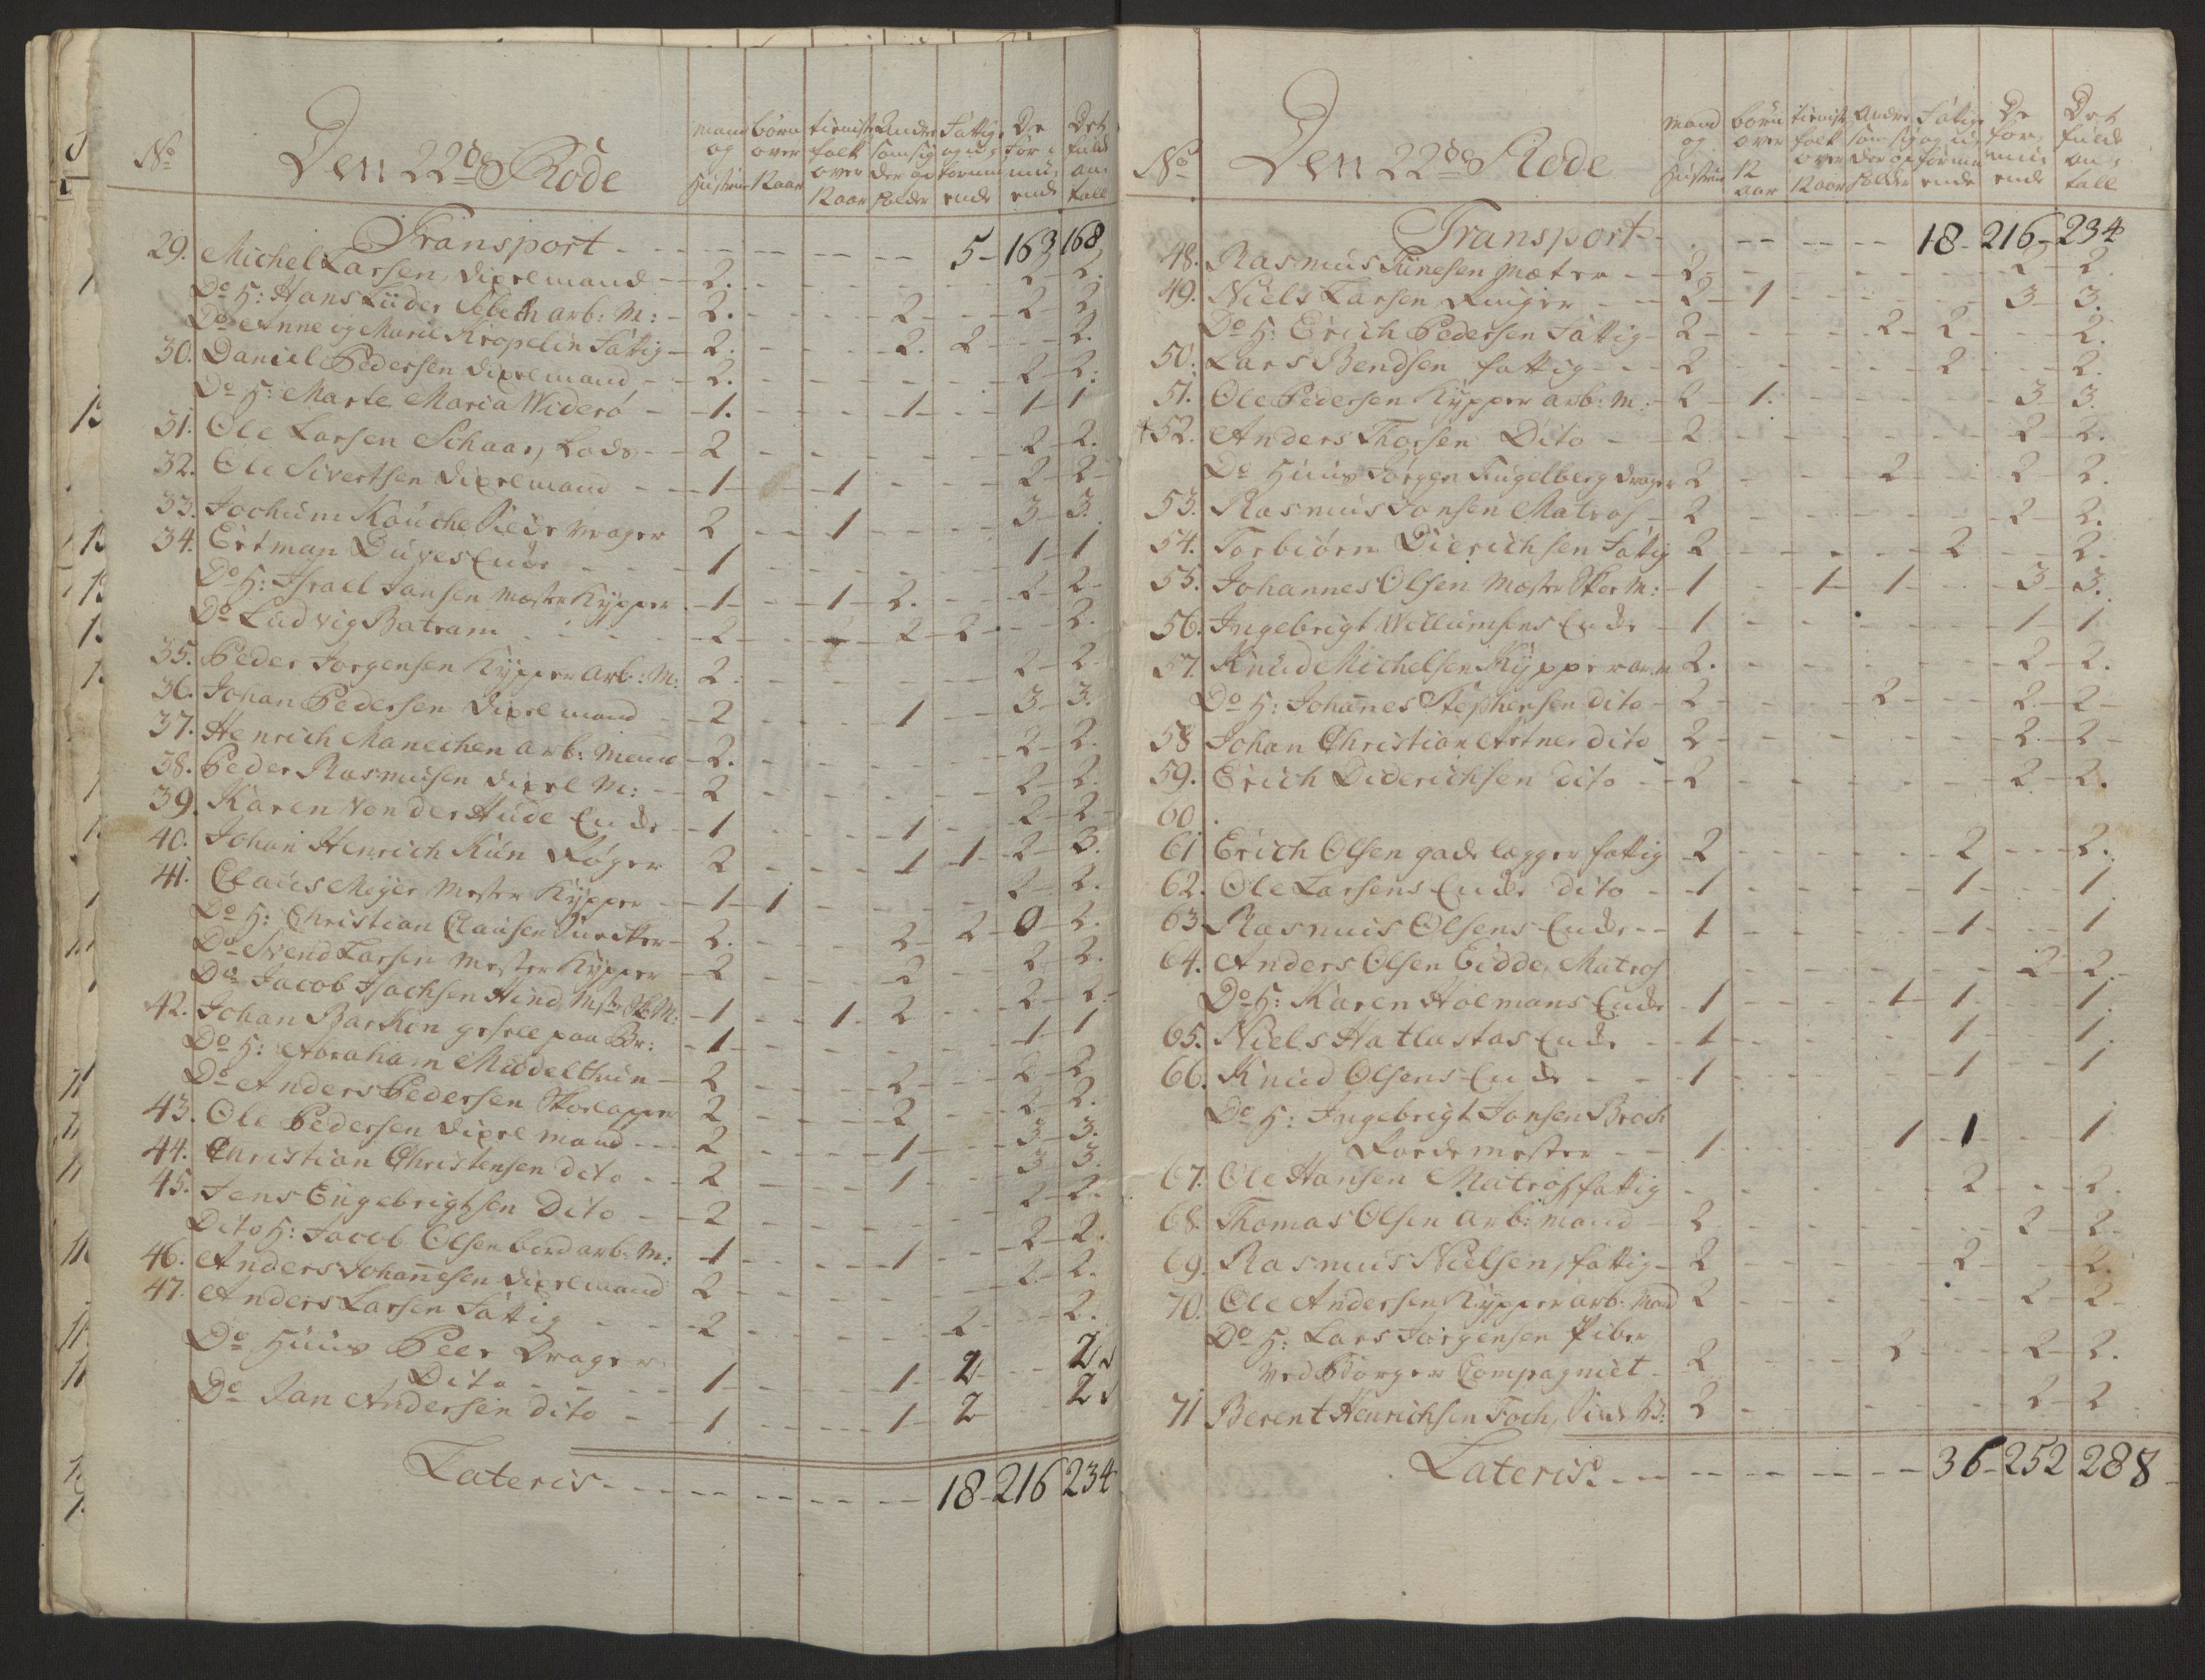 No Den 22de Rode mand og Hustrue børn over 12 aar tieniste folk over 12 aar Andre som sig der op holder Fattige og u formu ende De for mu ende Det fulde an tall
Transport - - - - - 5 - 163 168
29. Michel Larsen, Dixelmand - 2. - - - - 2 - 2.
Do H: Hans Lüder Sebeth arb: M: - 2. - - 2 - - 2 - 2
Do Anne og Marie Kropelin Fattig - 2. - - 2. 2 - - 2.
30. Daniel Pedersen Dixelmand - - 2. - - - - 2 - 2.
Do H: Marte Maria Widerø - 1. - - 1 - - 1 - 1
31. Ole Larsen Schaar, Lods - - 2 - - - - 2 - 2.
32. Ole Sivertsen Dixelmand - - 1 - - 1 - - - 2 - 2 -
33. Jochum Kouche Silde Vrager 2 - - 1 - - - 3 - 3.
34. Ertman Duves Enke - - - 1 - - - - 1 - 1
Do H: Israel Jansen Mester Kypper - 1 - - 1 - 2. - - 2 - 2 -
Do Ludvig Batram - - - 2 - - 2 - 2 - - 2.
35. Peder Jorgensen Kypper Arb: M: 2. - - - - 2 - 2.
36. Johan Pedersen Dixelmand - 2 - - - 1 - - 3 - 3.
37. Henrich Manechen arb: Mand - 2. - - - - 2 - 2.
38. Peder Rasmusen Dixel M: - - 2 - - - - 2 - 2.
39. Karen von der Hude Enke - 1 - - - 1 - - 2 - 2 -
40. Johan Henrich Kün Røger - 2 - - - 1 - 1 - 2 - 3.
41. Claus Meyer Mester Kypper - - 1 - 1 - - - - 2 - 2.
Do H: Christian Clausen - 2. - - - 2 - 2 - 0 - 2.
Do Svend Larsen Mester Kypper - 2 - - - 2 - - 2 - 2.
Do Jacob Isachsen Hind, Mster Sko M: - 1 - - 1 - 2 - - 2 - 2.
42. Johan Barkin gesell paa Br: - 1 - - - - - 1 - 1
Do H: Abraham Middelthun - 2 - - - 2 - - 2 - 2
Do Anders Pedersen Skolapper 2 - - - 2 - - 2 - 2.
43. Ole Pedersen Dixelmand - - 2 - - - 1 - - 3 - 3.
44. Christian Christensen dito - - 2 - - - 1 - - 3 - 3.
45. Jens Engebrigtsen Dito - - 2 - - - - - 2 - 2.
Dito H: Jacob Olsen bord arb: M: - 1 - - - 1 - - 2 - 2.
46. Anders Johannesen Dixelmand 2 - - - - - 2 - 2.
47. Anders Larsen Fattig - - - 2 - - - - 2 - - 2.
Do Huus Peer Drager
Dito - - - 1 - - - 1 - 2 - - 2
Do Jan Andersen dito - - 1 - - - 1 - 2 - 2
Lateris - - - - - - - 18 - 216 234
No Den 22de Rode mand og Hustrue børn over 12 aar tieniste folk over 12 aar Andre som sig der op holder Fatige og u formu ende De for mu ende Det fulde an tall
Transport - - - - - 18 - 216 - 234
48. Rasmus Tünesen Mæter - - 2 - - - - - 2 - 2.
49. Niels Larsen Ringer - - 2 - 1 - - - - 3 - 3.
Do H: Erich Pedersen Fattig - 2 - - - 2 - 2 - - 2.
50. Lars Bendsen fattig - - - 2 - - - - 2 - - 2.
51. Ole Pedersen Kypper arb: M: - 2 - 1. - - - - 3 - 3.
+52. Anders Thorsen Dito - - 2 - - - - - 2 - 2.
Do Huus Jørgen Fugelberg Drager 2 - - - 2 - - 2 - 2.
53. Rasmus Jonsen Matros - 2 - - - - - 2 - 2.
54. Torbiørn Dierichsen Fatig 2 - - - - 2 - - 2.
55. Johannes Olsen Mester Skom: - 1 - - 1 - 1 - - 3 - 3.
56. Ingebrigt Willumsens Enke - 1 - - - - - 1 - 1
57. Knud Michelsen Kypper arb: M 2. - - - - - 2 - 2.
Do H: Johannes Stephensen dito - 2 - - - 2 - - 2 - 2 -
58 Johan Christian Artner dito 2 - - - - - 2 - 2 -
59. Erich Diderichsen dito - - 2 - - - - - 2 - 2.
60.
61 Erich Olsen gade lægger fattig 2 - - - - 2 - - 2.
62. Ole Larsens Enke dito - - 1 - - - - 1 - - 1
63. Rasmus Olsens Enke - - 1 - - - - 1 - - 1
64. Anders Olsen Eidde, Matros - - - - - 2 - 2.
Do H: Karen Holmans Enke - 1 - - - 1 - 1 - - 1.
65. Niels Hatlastas Enke - - 1 - - - - 1 - - 1.
66. Knud Olsens Enke - - - 1 - - - - 1 - - 1
Do H: Ingebrigt Jonsen Broch
Rodemester - - 1 - - - 1 - 1 - - 1
67. Ole Hansen Matros fattig - - - - - 2 - - 2.
68. Thomas Olsen Arb: mand - 2 - - - - - 2 - 2 -
69. Rasmus Nielsen, fattig - 2 - - - - 2 - - 2.
70. Ole Andersen Kypper arb: Mand 2 - - - - - 2 - 2 -
Do H: Lars Jørgensen Piber
ved Borger Compagniet - 2 - - - 2 - - 2 - 2.
71 Berent Henrichsen Foch, Silde V: 2 - - - - - 2 - 2
Lateris. - - - - - - 36 - 252 288 -